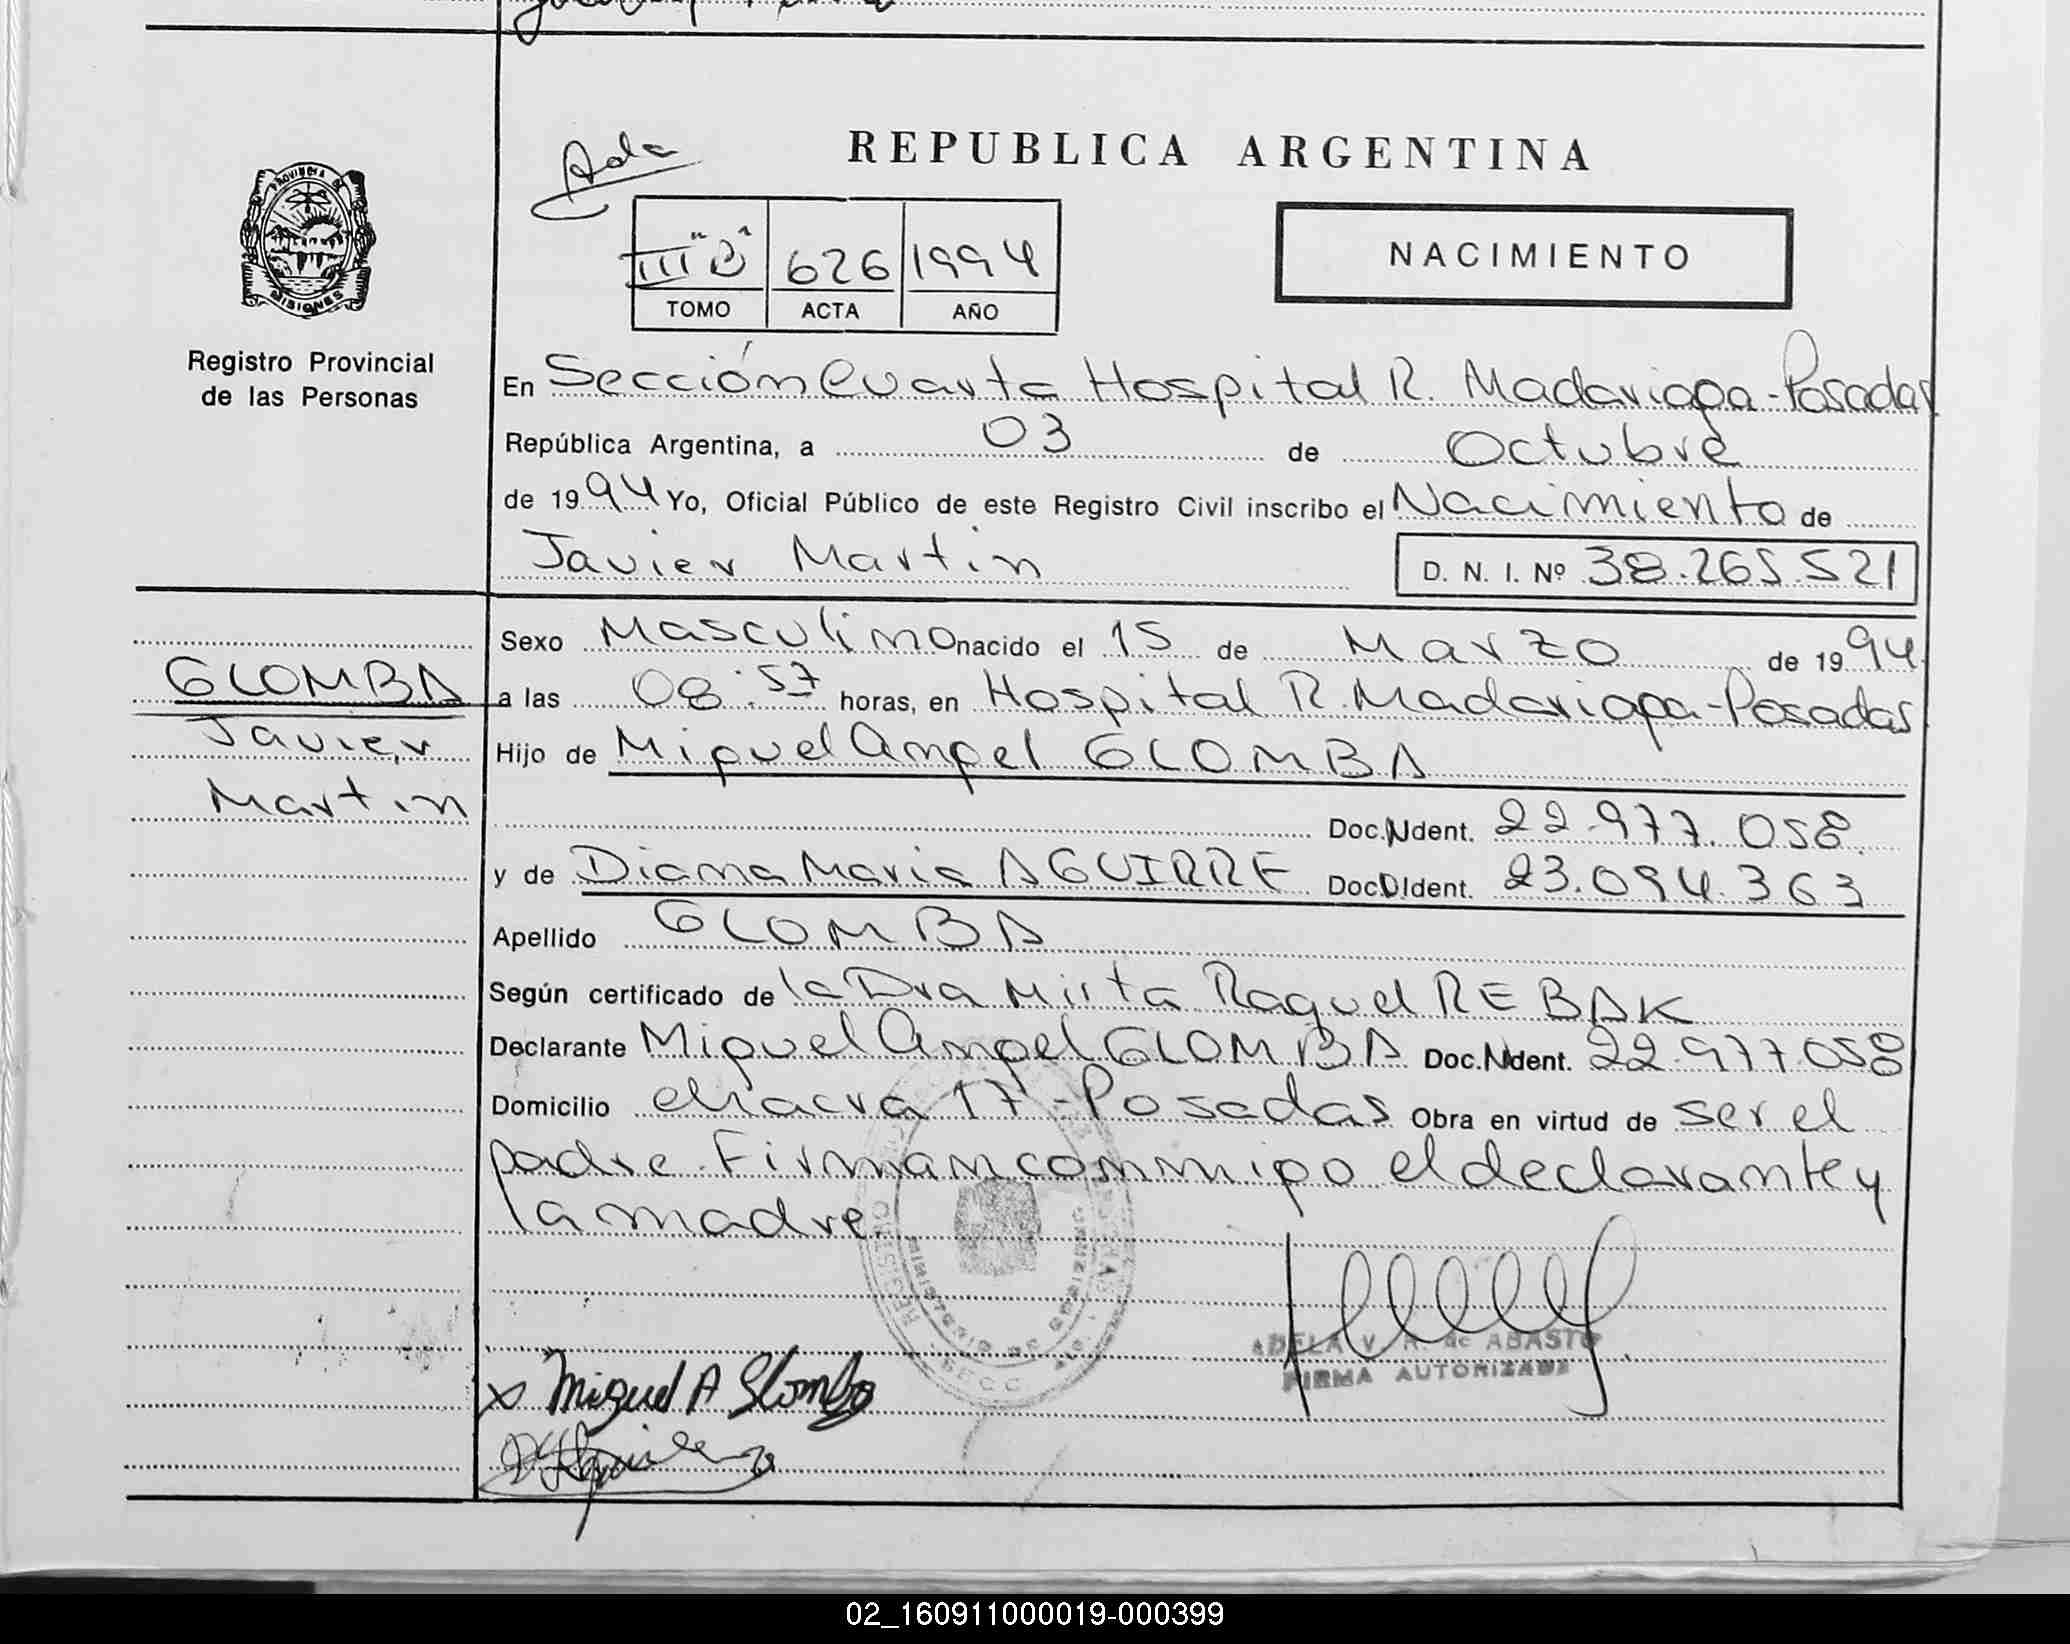 Ada
REPUBLICA ARGENTINA
III "B" 626 1994
TOMO ACTA AÑO
NACIMIENTO
PROVINCIA DE
MISIONES
Registro Provincial
de las Personas
En Sección Cuarta Hospital R. Madariaga-Posadas
República Argentina, a 03 de Octubre
de 1994 Yo, Oficial Público de este Registro Civil inscribo el Nacimiento de
Javier Martin D. N. I. Nº 38.265.521
GLOMBA
Javier
Martin
Sexo Masculino nacido el 15 de Marzo de 1994
a las 08:57 horas, en Hospital R. Madariaga-Posadas
Hijo de Miguel Angel GLOMBA
Doc. Ident. 22.977.058
y de Diana Maria AGUIRRE Doc. Ident. 23.094.363
Apellido GLOMBA
Según certificado de la Dra Mirta Raquel REBAK
Declarante Miguel Angel GLOMBA Doc. Ident. 22.977.058
Domicilio chacra 17-Posadas Obra en virtud de ser el
padre. Firman conmigo el declarante y
la madre.
MINISTERIO DE GOBIERNO
ADELA V. R. de ABASTO
FIRMA AUTORIZADA
x Miguel A Glomba
02_160911000019-000399